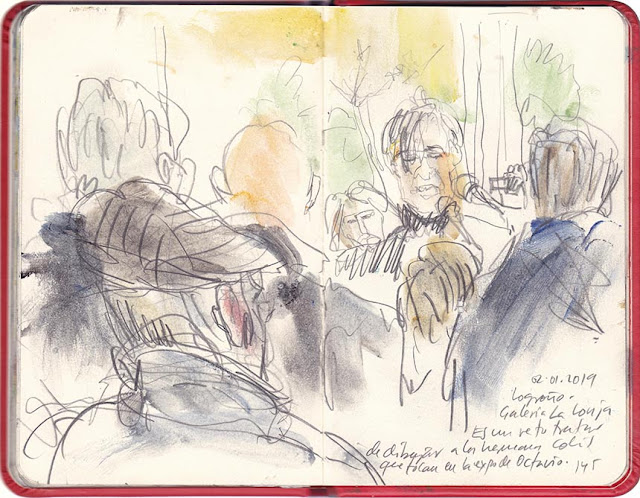 02.01.2019
Logroño.
Galería La Lonja
Es un reto tratar
de dibujar a los hermanos Colis
que tocan en la expo de Octavio. 145